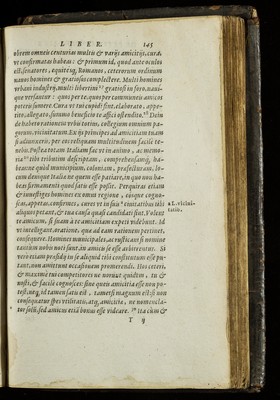 LIBER. 145
obrem omneis centurias multis & varijs amicitijs, cura,
ut confirmatas habeas: & primum id, quod ante oculos
est, senatores, equitesq́; Romanos, ceterorum ordinum
navos homines & gratiosos complectere. Multi homines
urbani industrij, multi libertini in foro gratiosi navi-
que versantur: quos per te, quos per communeis amicos
poteris
summa cura ut cupidi sint, elaborato, appe-
tito, allegato, summo beneficio te affici ostendito. Dein
de habeto rationem urbis totius, collegiorum omnium pa-
gorum, vicinitatum. Ex ijs principes ad amicitiam tuam
si adiunxeris, per eos reliquam multitudinem facilè te-
nebis. Postea totam Italiam fac ut in animo, ac memo-
ria tibi tributim descriptam, comprehensamq́; ha-
beas: ne quod municipium, coloniam, præfecturam, lo-
cum denique Italiæ ne quem esse patiare, in quo non ha-
beas firmamenti quod satis esse possit. Perquiras etiam
& investiges homines ex omni regione, eosque cognos-
cas, appetas, confirmes, cures ut in suis civitatibus tibi
aliquos petant, & tua causa quasi candidati sint. Volent
te amicum, si suam à te amicitiam expeti videbunt. Id
ut intelligant, oratione, quæ ad eam rationem pertinet,
consequere. Homines municipales, ac rusticani si nomine
tantùm nobis noti sunt, in amicitia se esse arbitrantur. Si
verò etiam præsidij se aliquid sibi constituere esse pu-
tant, non amittunt occasionem promerendi. Hos ceteri,
& maximè tui competitores ne norunt quidem, tu &
nosti, & facilè cognosces: sine quo amicitia esse non po-
test. neq́; id tamen satis est, tametsi magnum est: si non
consequatur spes utilitatis, atq́; amicitiæ, ne nomencla-
tor solùm, sed amicus etiam bonus esse videare. Ita cum &
T ij
a L. vicini-
tatib.